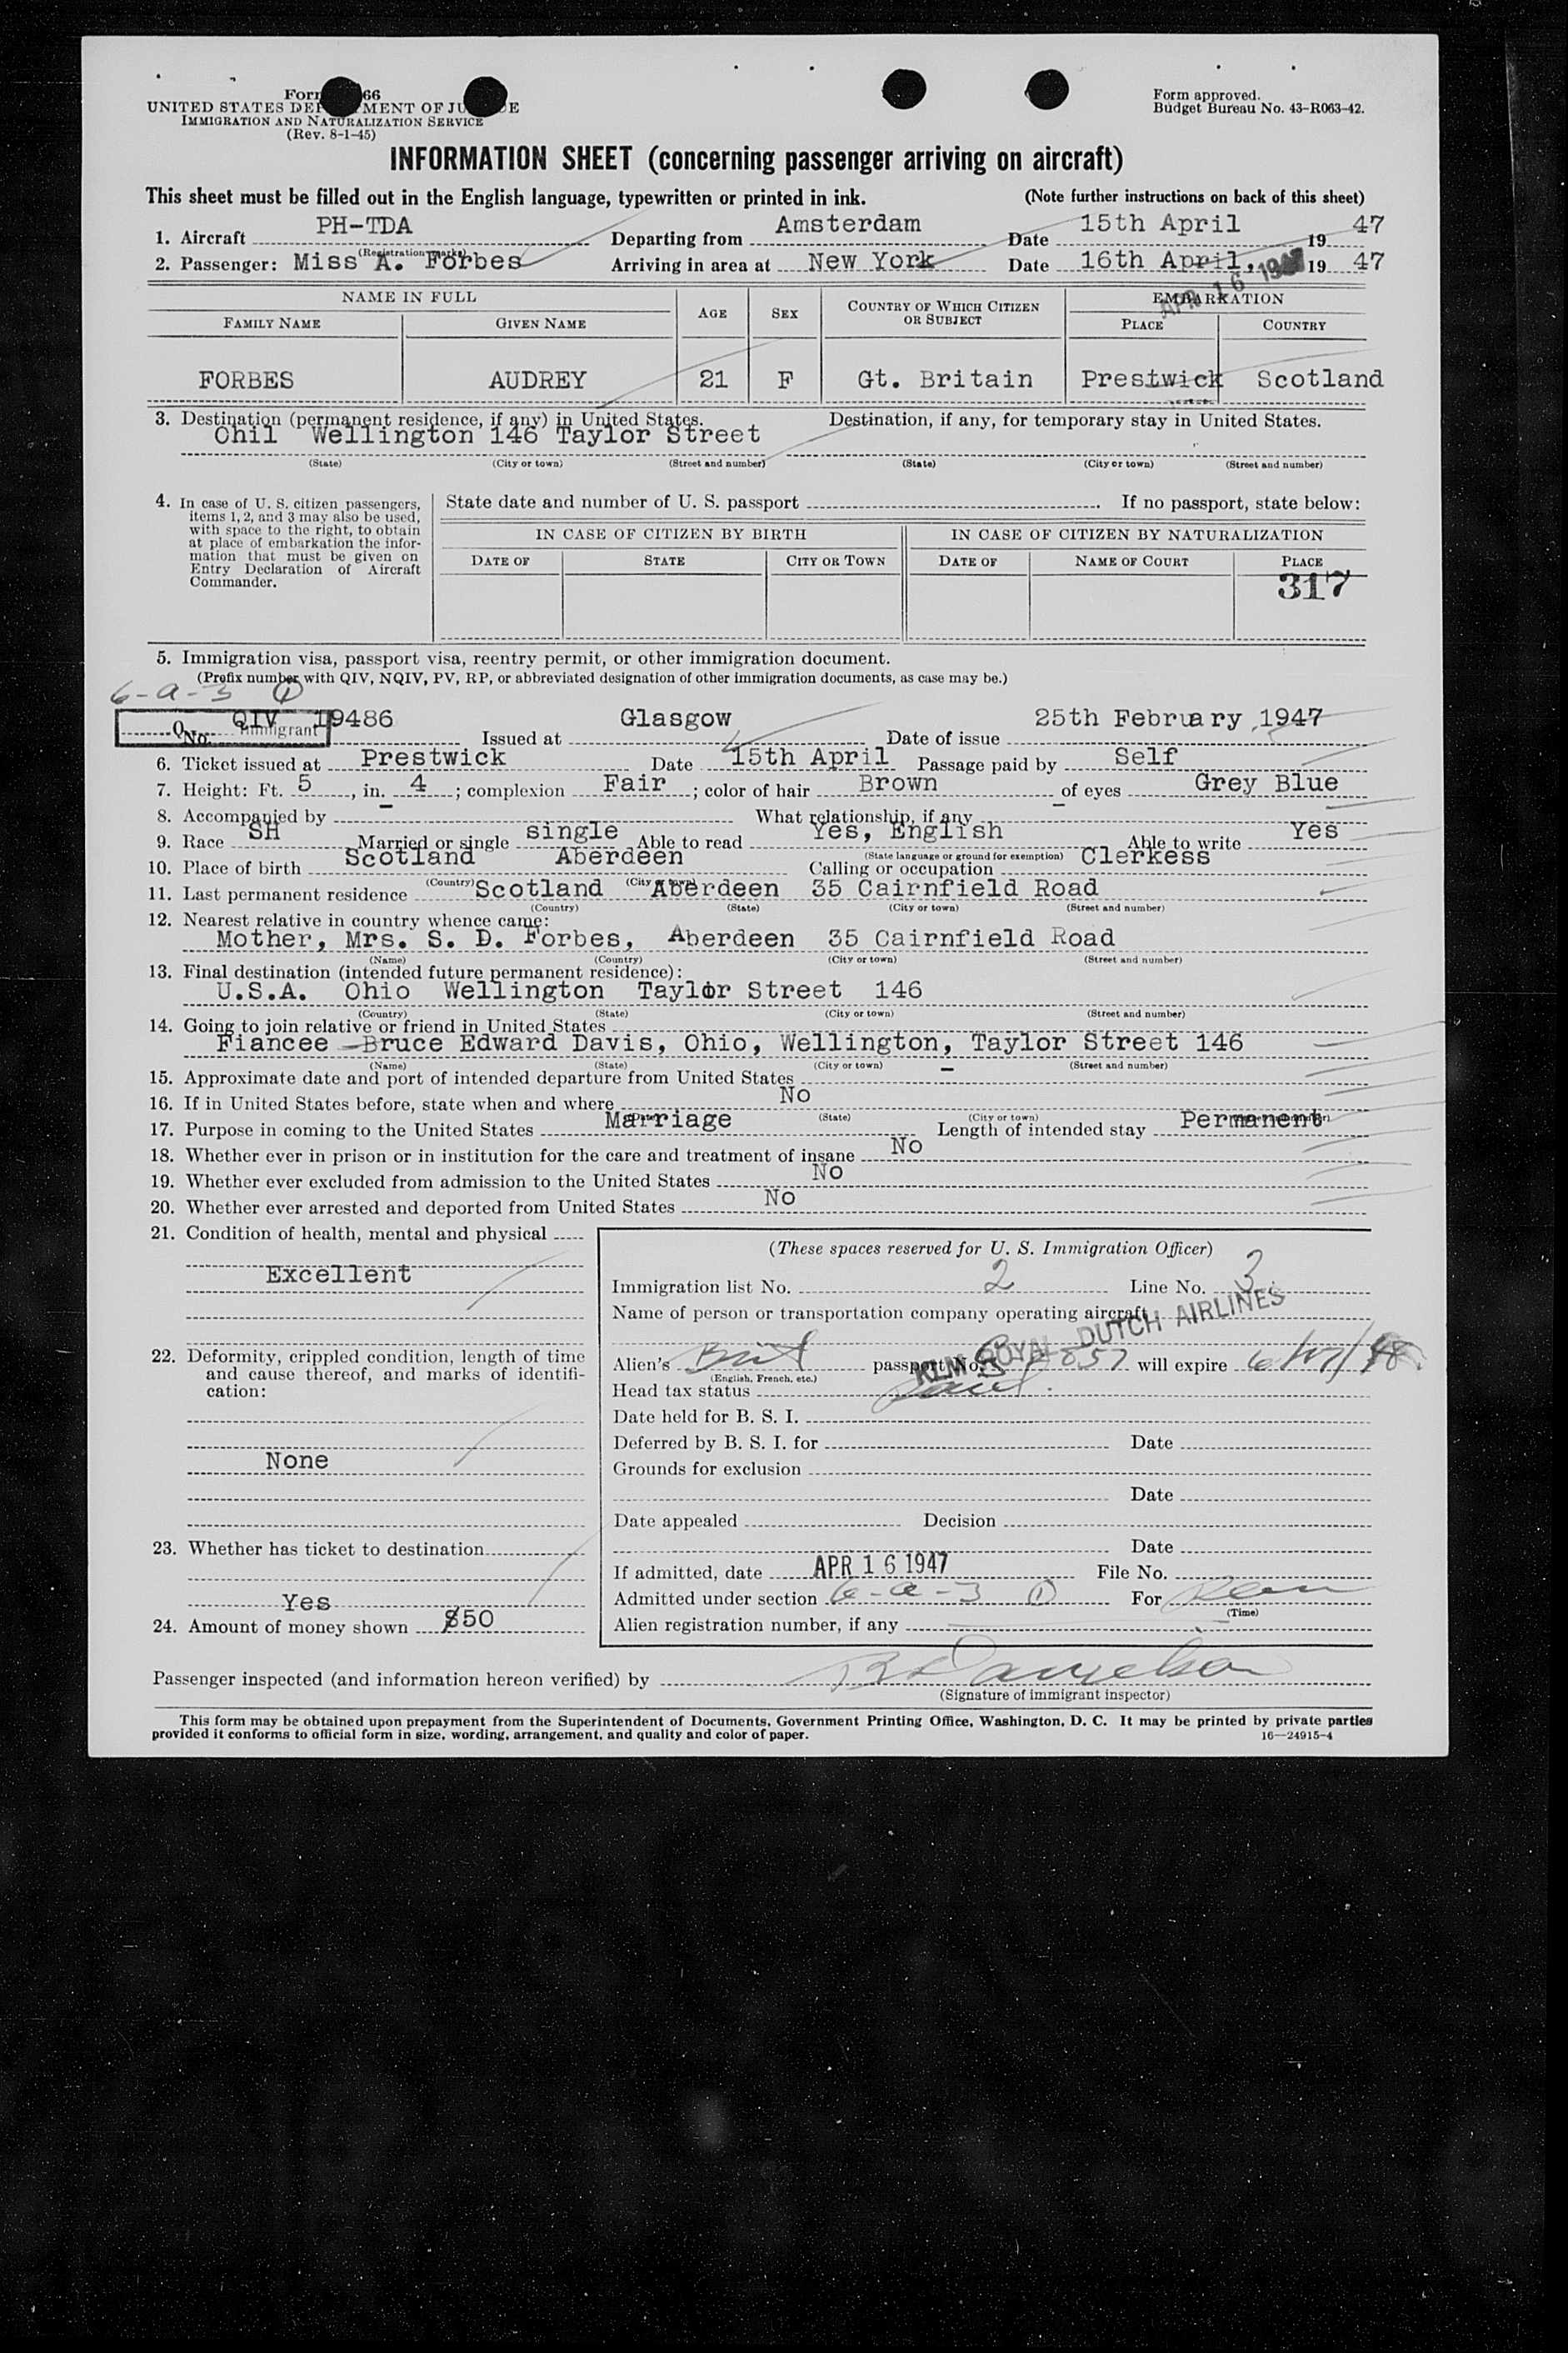 Form 66
UNITED STATES DEP MENT OF JU E
IMMIGRATION AND NATURALIZATION SERVICE
(Rev. 8-1-45)
Form approved.
Budget Bureau No. 43-R063-42.
INFORMATION SHEET (concerning passenger arriving on aircraft)
This sheet must be filled out in the English language, typewritten or printed in ink. (Note further instructions on back of this sheet)
1. Aircraft PH-TDA Departing from Amsterdam Date 15th April 19 47
(Registration marks)
2. Passenger: Miss A. Forbes Arriving in area at New York Date 16th April, 19 47
APR 16 1947
NAME IN FULL AGE SEX COUNTRY OF WHICH CITIZEN OR SUBJECT EMBARKATION
FAMILY NAME GIVEN NAME PLACE COUNTRY
FORBES AUDREY 21 F Gt. Britain Prestwick Scotland
3. Destination (permanent residence, if any) in United States. Destination, if any, for temporary stay in United States.
Ohil Wellington 146 Taylor Street
(State) (City or town) (Street and number) (State) (City or town) (Street and number)
4. In case of U. S. citizen passengers, items 1, 2, and 3 may also be used, with space to the right, to obtain at place of embarkation the information that must be given on Entry Declaration of Aircraft Commander.
State date and number of U. S. passport If no passport, state below:
IN CASE OF CITIZEN BY BIRTH IN CASE OF CITIZEN BY NATURALIZATION
DATE OF STATE CITY OR TOWN DATE OF NAME OF COURT PLACE
317
5. Immigration visa, passport visa, reentry permit, or other immigration document.
(Prefix number with QIV, NQIV, PV, RP, or abbreviated designation of other immigration documents, as case may be.)
6-a-3 (1)
Q Immigrant
No. QIV 19486 Issued at Glasgow Date of issue 25th February, 1947
6. Ticket issued at Prestwick Date 15th April Passage paid by Self
7. Height: Ft. 5, in. 4; complexion Fair; color of hair Brown of eyes Grey Blue
8. Accompanied by - What relationship, if any -
9. Race SH Married or single single Able to read Yes, English Able to write Yes
(State language or ground for exemption)
10. Place of birth Scotland Aberdeen Calling or occupation Clerkess
(Country) (City or town)
11. Last permanent residence Scotland Aberdeen 35 Cairnfield Road
(Country) (State) (City or town) (Street and number)
12. Nearest relative in country whence came:
Mother, Mrs. S. D. Forbes, Aberdeen 35 Cairnfield Road
(Name) (Country) (City or town) (Street and number)
13. Final destination (intended future permanent residence):
U.S.A. Ohio Wellington Taylor Street 146
(Country) (State) (City or town) (Street and number)
14. Going to join relative or friend in United States
Fiancee - Bruce Edward Davis, Ohio, Wellington, Taylor Street 146
(Name) (State) (City or town) (Street and number)
15. Approximate date and port of intended departure from United States -
16. If in United States before, state when and where No
(Date) (State) (City or town)
17. Purpose in coming to the United States Marriage Length of intended stay Permanent
18. Whether ever in prison or in institution for the care and treatment of insane No
19. Whether ever excluded from admission to the United States No
20. Whether ever arrested and deported from United States No
21. Condition of health, mental and physical
Excellent
22. Deformity, crippled condition, length of time and cause thereof, and marks of identification:
None
23. Whether has ticket to destination
Yes
24. Amount of money shown $50
(These spaces reserved for U. S. Immigration Officer)
Immigration list No. 2 Line No. 3
Name of person or transportation company operating aircraft
KLM ROYAL DUTCH AIRLINES
Alien's Brit passport No. will expire
(English, French, etc.)
Head tax status
Date held for B. S. I.
Deferred by B. S. I. for Date
Grounds for exclusion
Date
Date appealed Decision
Date
If admitted, date APR 16 1947 File No.
Admitted under section 6-a-3 (1) For
(Time)
Alien registration number, if any
Passenger inspected (and information hereon verified) by
(Signature of immigrant inspector)
This form may be obtained upon prepayment from the Superintendent of Documents, Government Printing Office, Washington, D. C. It may be printed by private parties
provided it conforms to official form in size, wording, arrangement, and quality and color of paper. 16—24915-4